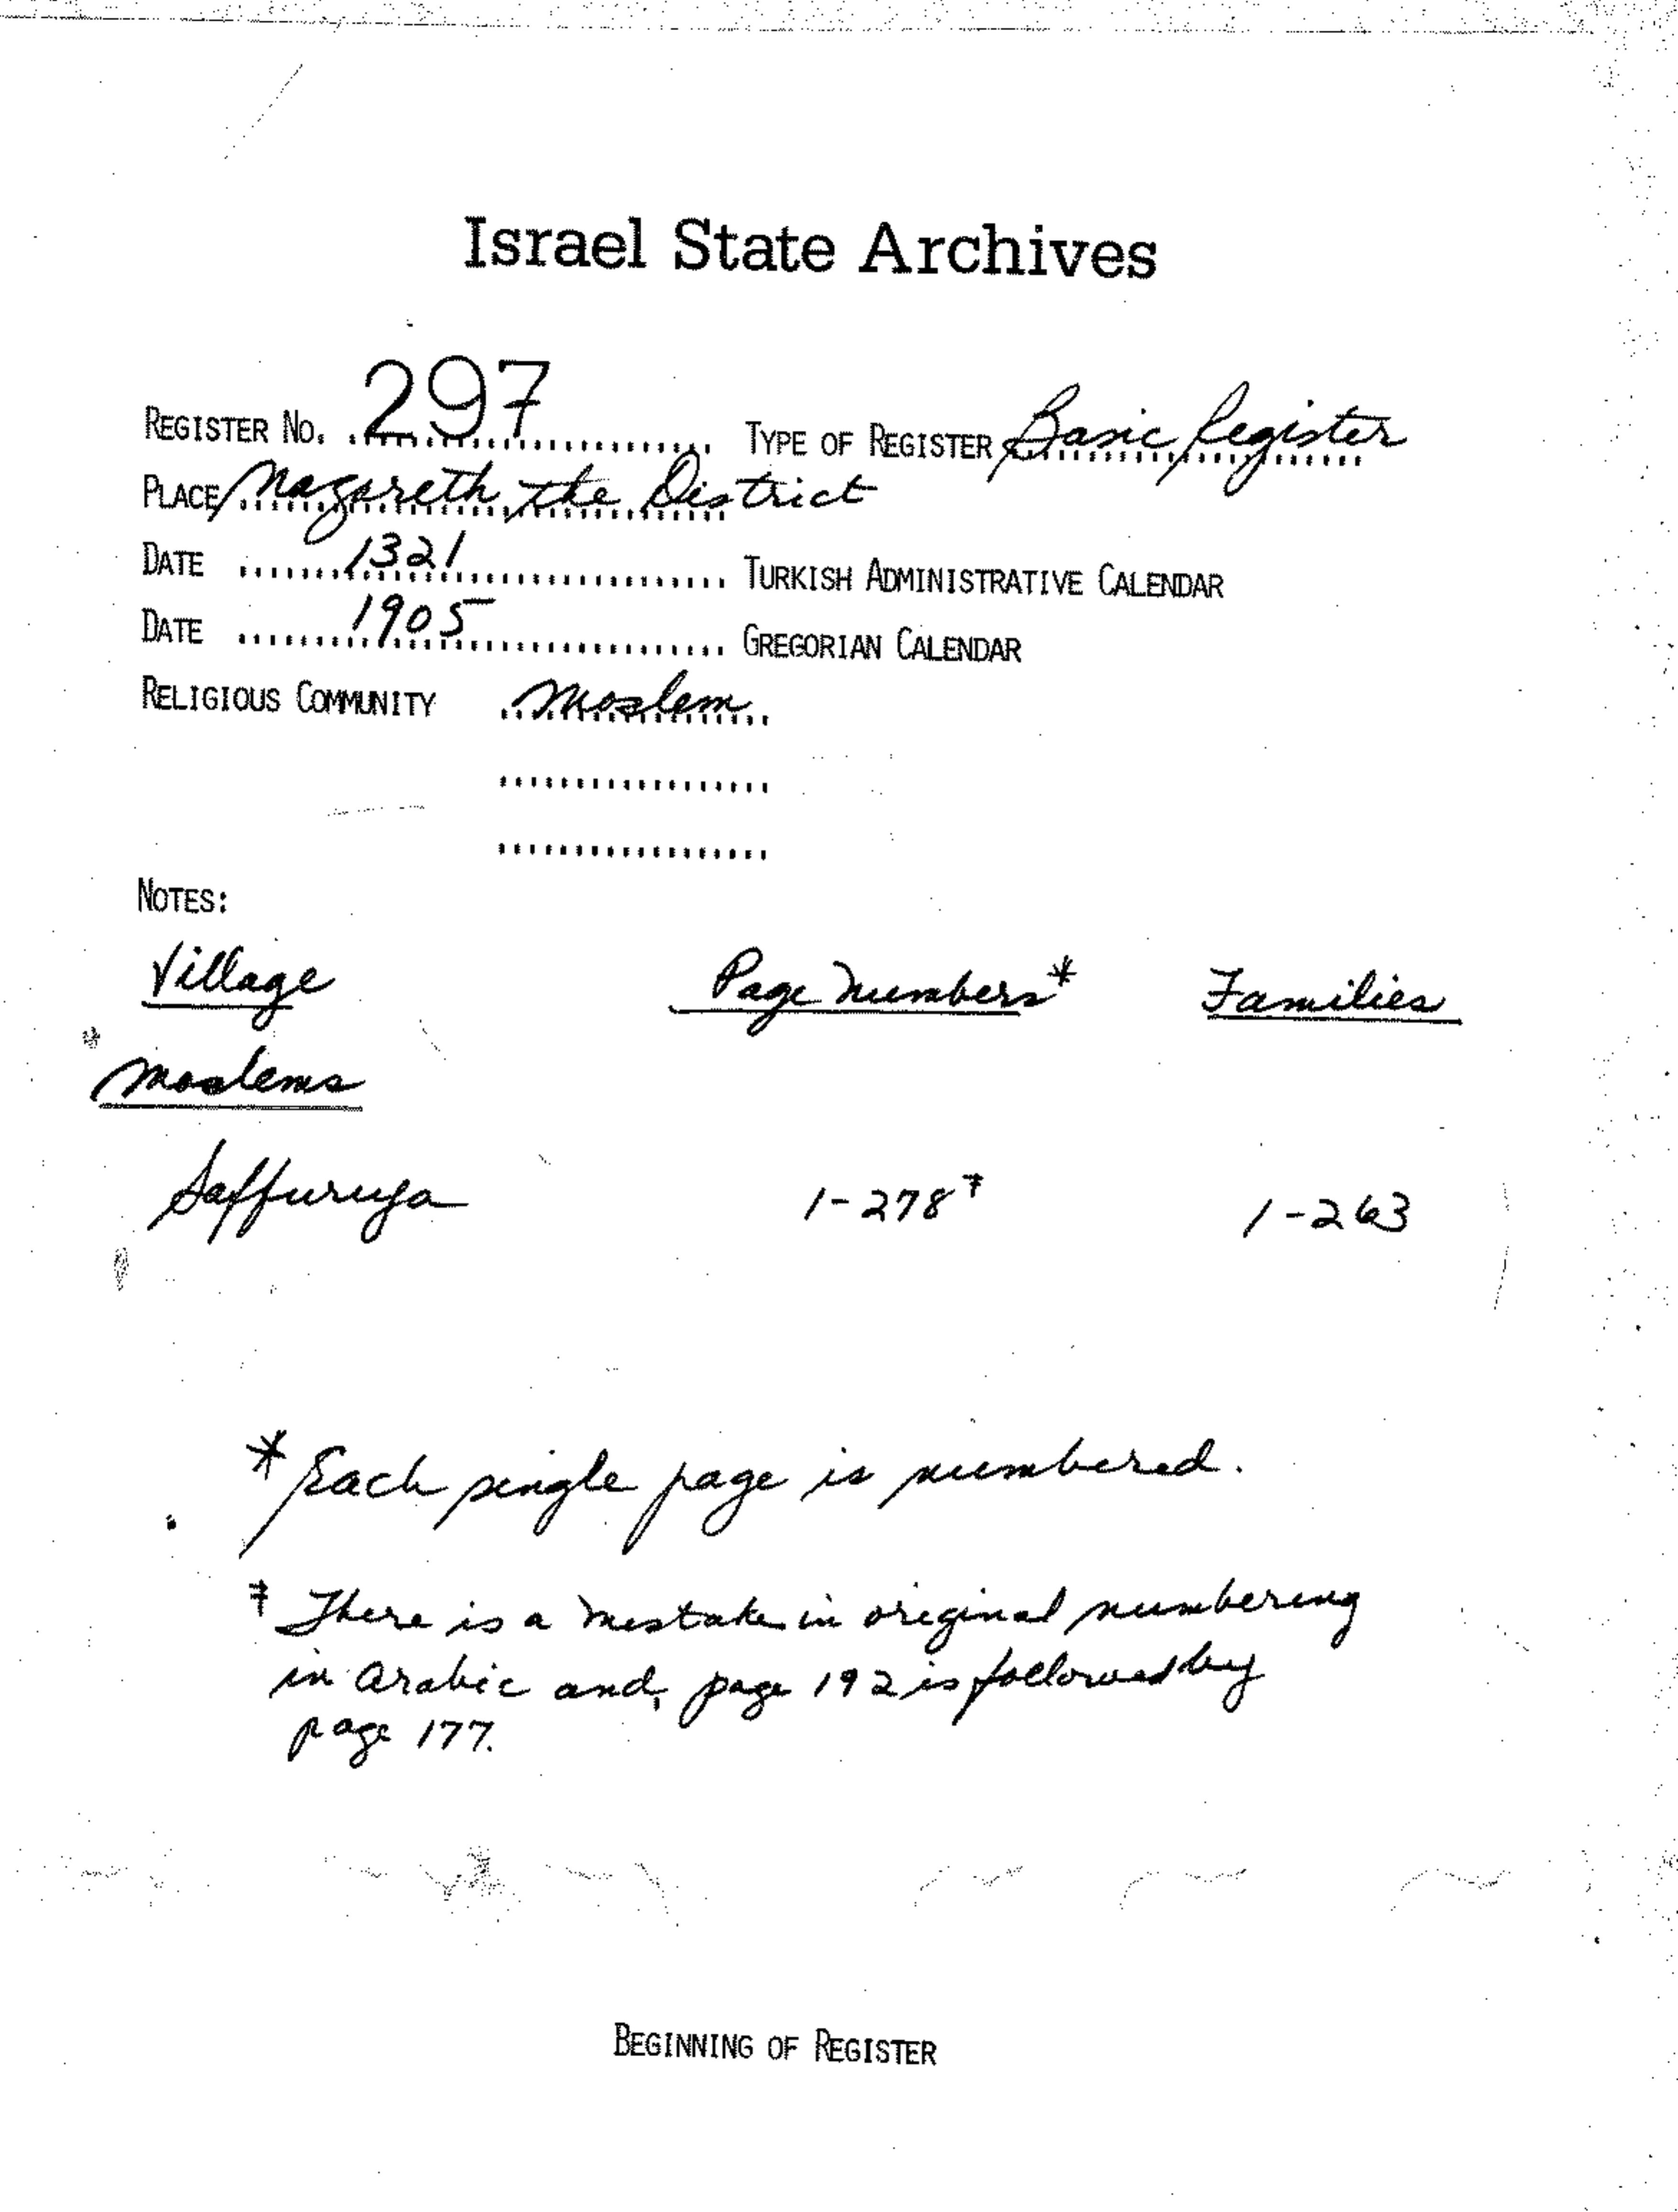 Israel State Archives
REGISTER NO. 297 TYPE OF REGISTER Basic Register
PLACE Nazareth, the District
DATE 1321 TURKISH ADMINISTRATIVE CALENDAR
DATE 1905 GREGORIAN CALENDAR
RELIGIOUS COMMUNITY Moslem
NOTES:
Village Page Numbers* Families
Moslems
Saffuruya 1-278‡ 1-263
* Each single page is numbered.
‡ There is a mistake in original numbering
in Arabic and, page 192 is followed by
page 177.
BEGINNING OF REGISTER